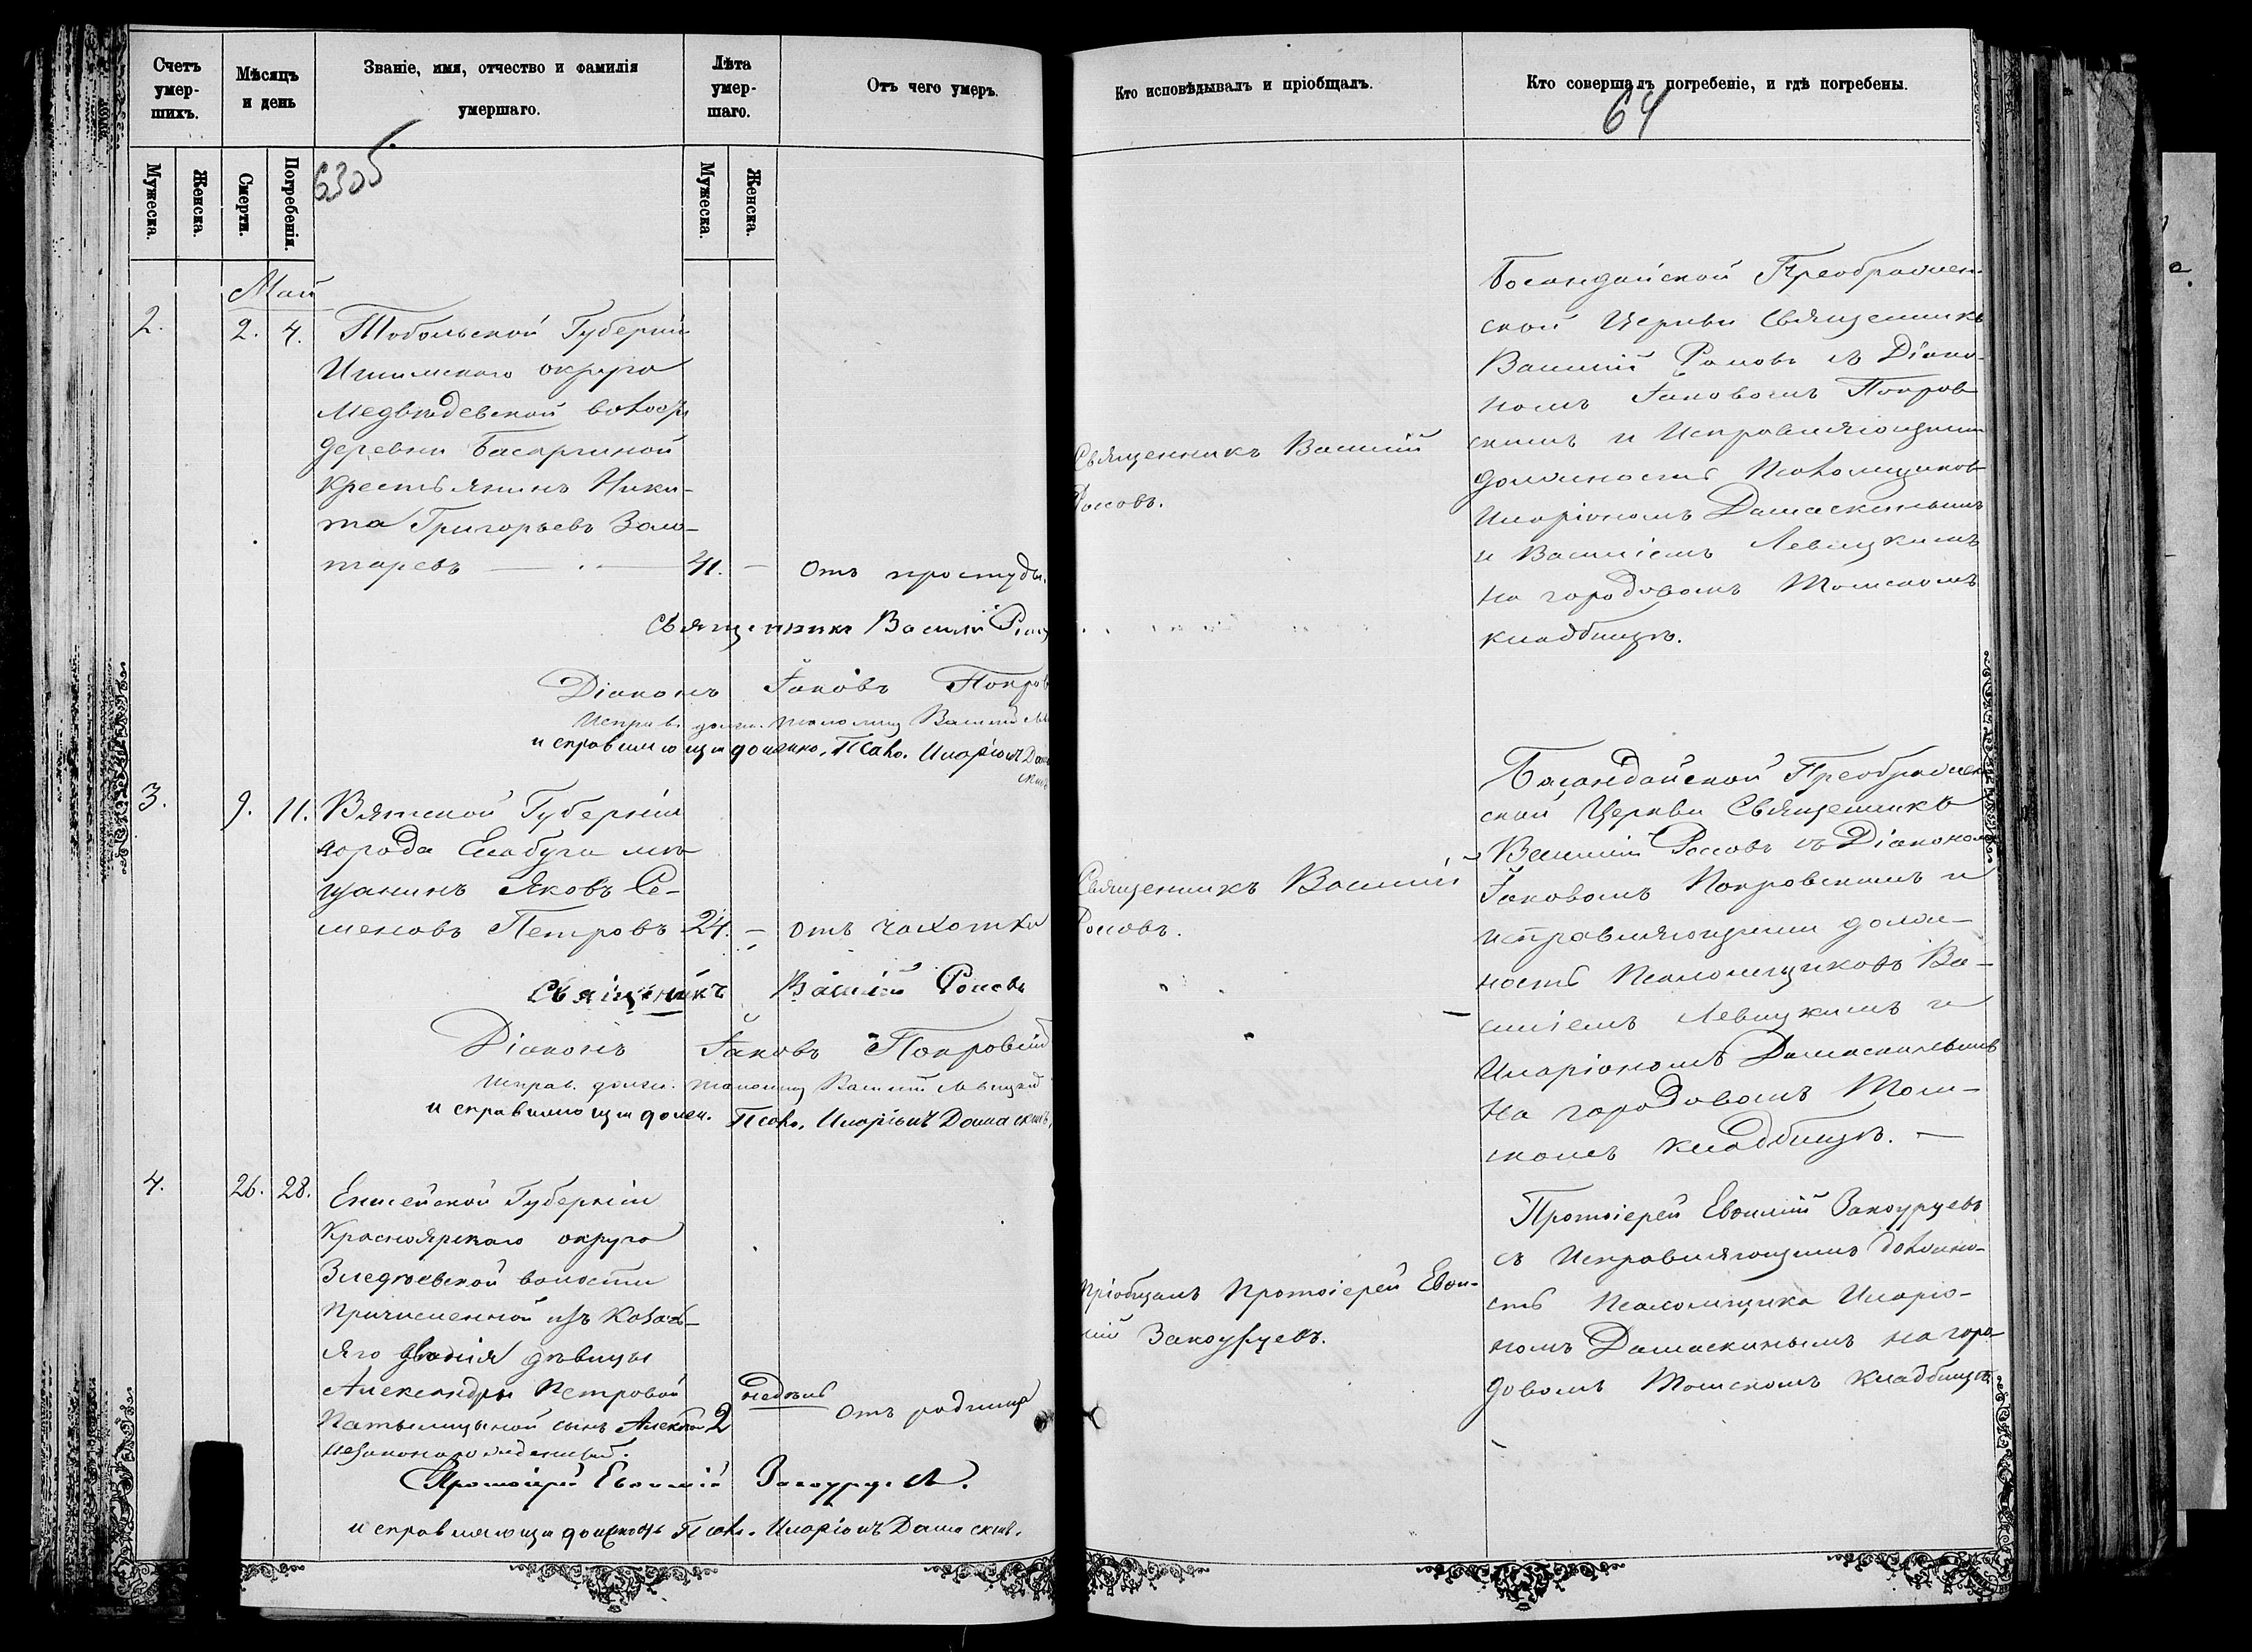 Счетъ умер- шихъ.
Мѣсяцъ и день
Званіе, имя, отчество и фамилія умершаго.
Лѣта умер- шаго.
Отъ чего умеръ.
Кто исповѣдывалъ и пріобщалъ.
Кто совершалъ погребеніе, и гдѣ погребены.
64
Мужеска.
Женска.
Смерти.
Погребенія.
6305
Мужеска.
Женска.
Май
2. 2. 4. Тобольской Губерніи
Ишимскаго округа
Медвѣдевской волос.
деревни Басаргиной
крестьянинъ Ники-
та Григорьевъ Золо-
таревъ 41. — Отъ простуды.
Священникъ Василій
Россовъ.
Босандайской Преображен-
ской Церкви Священникъ
Василій Россовъ съ Діако-
номъ Іаковомъ Покров-
скимъ и Исправляющими
должность Псаломщиковъ
Иларіономъ Дамаскинымъ
и Василіемъ Левицкимъ
на городовомъ Томскомъ
кладбищѣ.
Священникъ Василій
Діаконъ Іаковъ Покров
Исправ. должн. псаломщ Василій
исправляющи должно. Псал. Иларіонъ Дама
скинъ
3. 9. 11. Вятской Губерніи
города Елабуга мѣ-
щанинъ Яковъ Се-
меновъ Петровъ 24. — отъ чахотки
Священникъ Василій
Россовъ.
Басандайской Преображен
ской Церкви Священникъ
Василій Россовъ съ Діакономъ
Іаковомъ Покровскимъ и
исправляющими долж-
ность Псаломщиковъ Ва-
силіемъ Левицкимъ и
Иларіономъ Дамаскинымъ
на городовомъ Том-
скомъ кладбищѣ. —
Священикъ Василій Россовъ
Діаконъ Іаковъ Покровскій
Исправ. должн. псаломщ Василій Левицкій
исправляющи должн. Псал. Иларіонъ Дамаскинъ.
4. 26. 28. Енисейской Губерніи
Красноярскаго округа
Зледѣевской волости
причисленной изъ Казачь-
яго званія дѣвицы
Александры Петровой
сынъ Алексѣй 2 недѣль отъ родимца
незаконорожденный.
Пріобщалъ Протоіерей Евѳи-
мій Закоурцевъ.
Протоіерей Евѳимій Закоурцевъ
съ Исправляющимъ должно-
сть Псаломщика Иларіо-
номъ Дамаскинымъ на горо-
довомъ Томскомъ кладбищѣ.
Протоіерей Евѳимій Закоурцевъ.
исправляющи должность Псал. Иларіонъ Дамаскинъ.